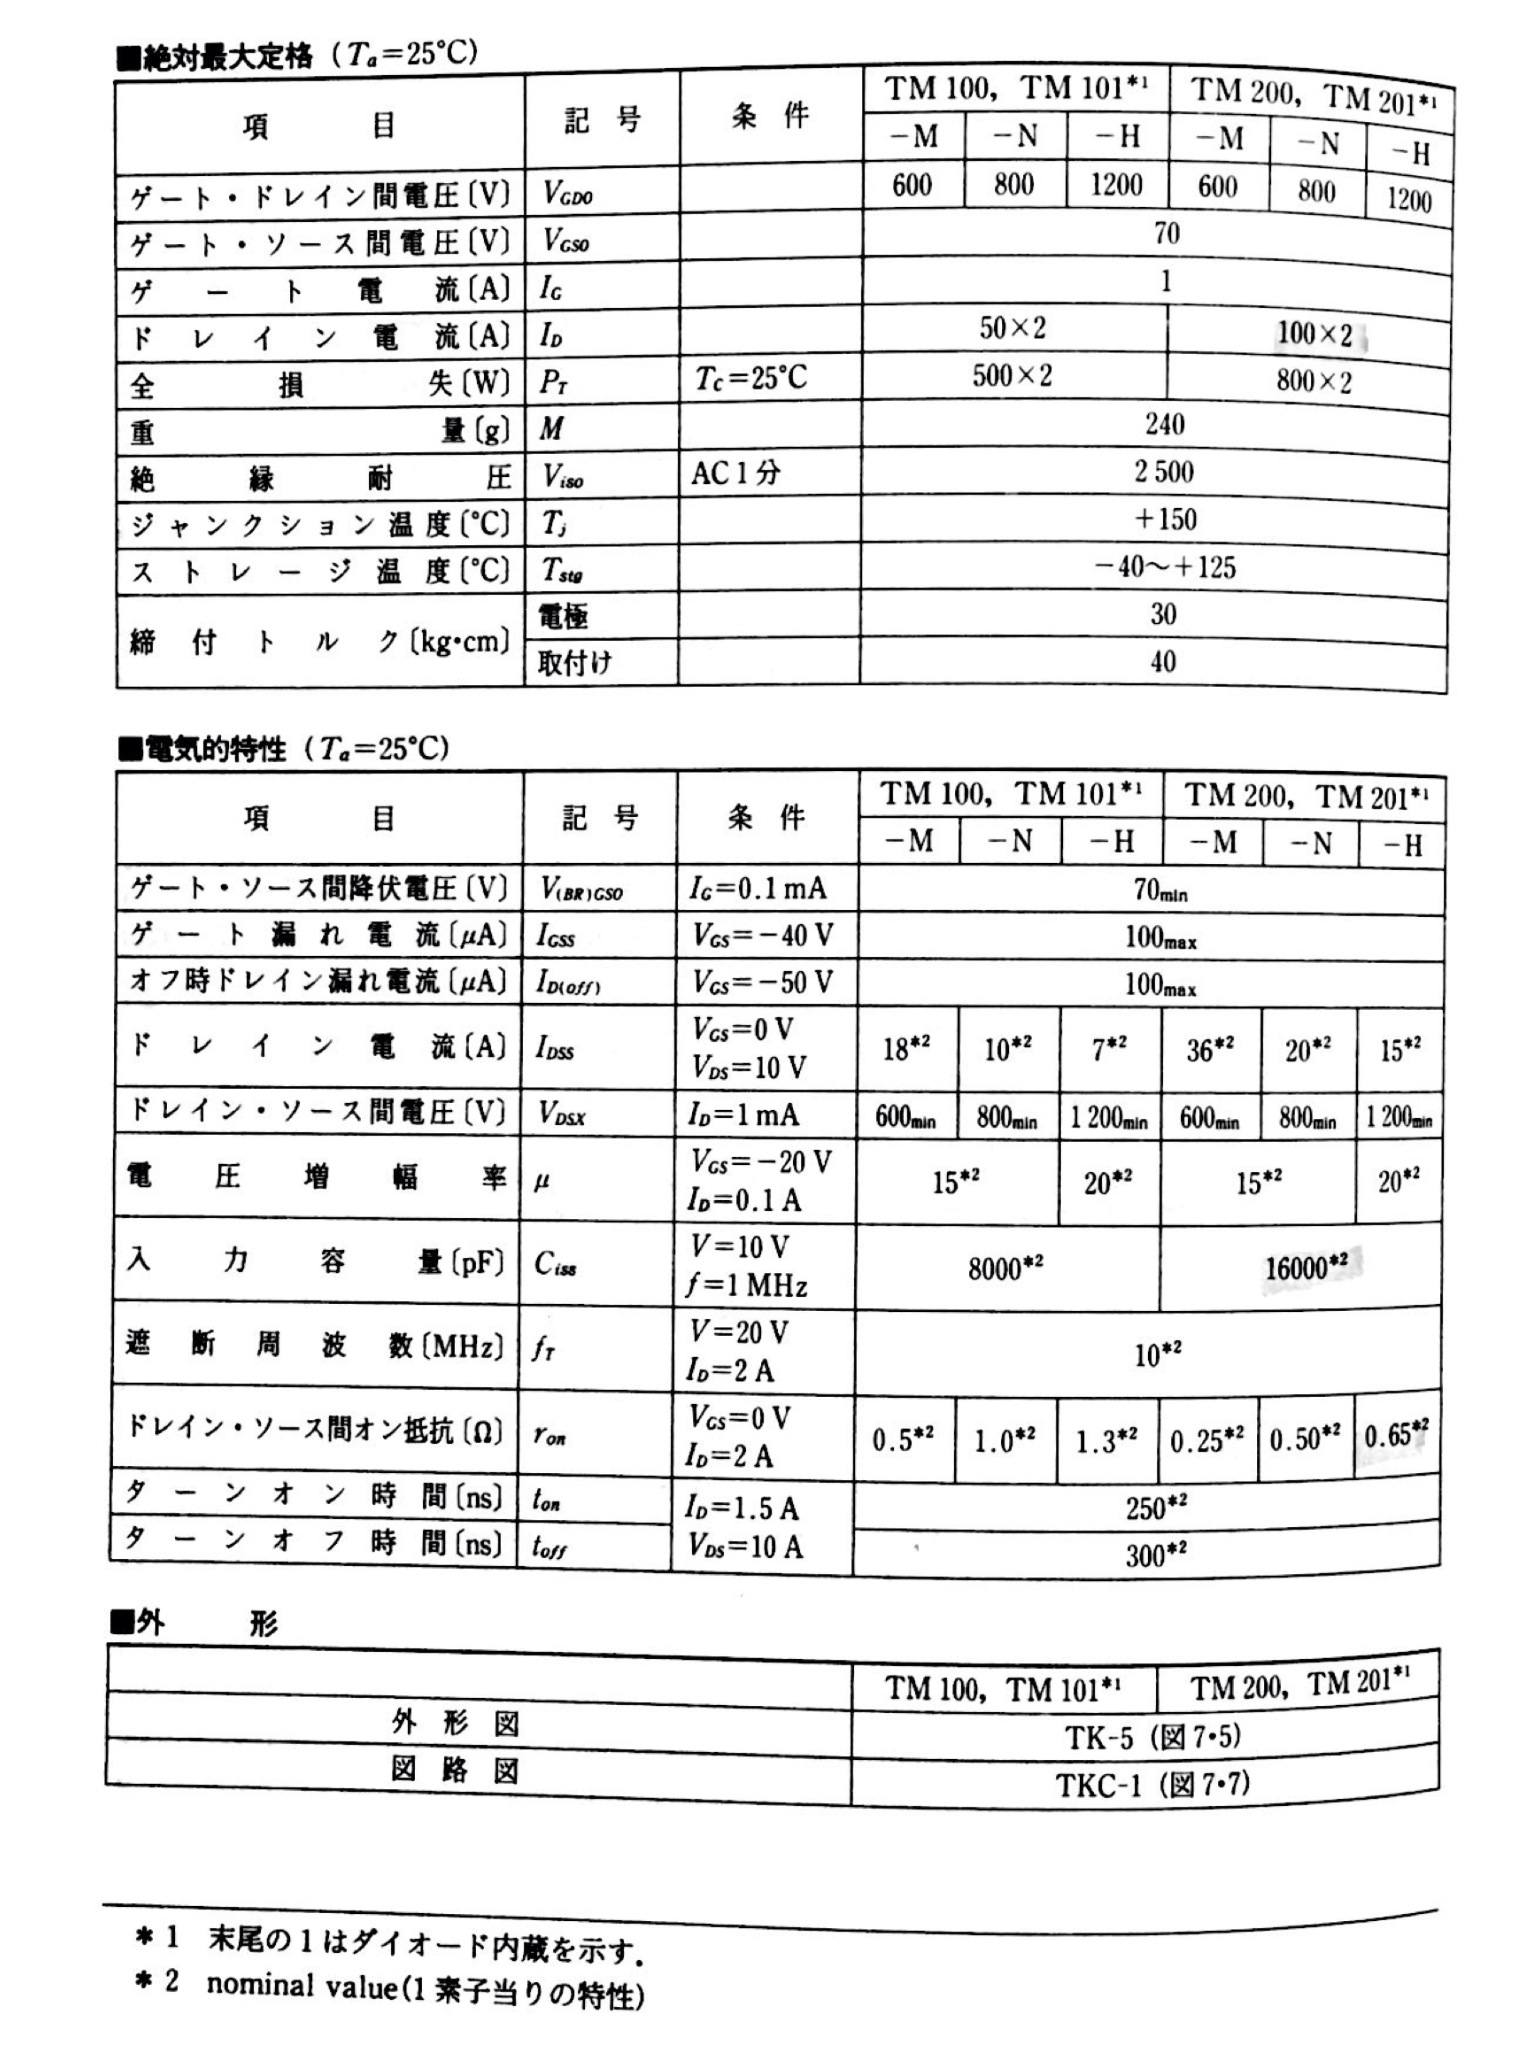 ■絶対最大定格 (Ta=25℃)
項目 記号 条件 TM 100, TM 101*1 TM 200, TM 201*1
−M −N −H −M −N −H
ゲート・ドレイン間電圧〔V〕 VGDO 600 800 1200 600 800 1200
ゲート・ソース間電圧〔V〕 VGSO 70
ゲート電流〔A〕 IG 1
ドレイン電流〔A〕 ID 50×2 100×2
全損失〔W〕 PT Tc=25℃ 500×2 800×2
重量〔g〕 M 240
絶縁耐圧 Viso AC 1分 2 500
ジャンクション温度〔℃〕 Tj +150
ストレージ温度〔℃〕 Tstg −40〜+125
締付トルク〔kg・cm〕 電極 30
取付け 40
■電気的特性 (Ta=25℃)
項目 記号 条件 TM 100, TM 101*1 TM 200, TM 201*1
−M −N −H −M −N −H
ゲート・ソース間降伏電圧〔V〕 V(BR)GSO IG=0.1 mA 70min
ゲート漏れ電流〔μA〕 IGSS VGS=−40 V 100max
オフ時ドレイン漏れ電流〔μA〕 ID(off) VGS=−50 V 100max
ドレイン電流〔A〕 IDSS VGS=0 V VDS=10 V 18*2 10*2 7*2 36*2 20*2 15*2
ドレイン・ソース間電圧〔V〕 VDSX ID=1 mA 600min 800min 1 200min 600min 800min 1 200min
電圧増幅率 μ VGS=−20 V ID=0.1 A 15*2 20*2 15*2 20*2
入力容量〔pF〕 Ciss V=10 V f=1 MHz 8000*2 16000*2
遮断周波数〔MHz〕 fT V=20 V ID=2 A 10*2
ドレイン・ソース間オン抵抗〔Ω〕 ron VGS=0 V ID=2 A 0.5*2 1.0*2 1.3*2 0.25*2 0.50*2 0.65*2
ターンオン時間〔ns〕 ton ID=1.5 A 250*2
ターンオフ時間〔ns〕 toff VDS=10 A 300*2
■外形
TM 100, TM 101*1 TM 200, TM 201*1
外形図 TK-5 (図7・5)
図路図 TKC-1 (図7・7)
*1 末尾の1はダイオード内蔵を示す.
*2 nominal value(1素子当りの特性)